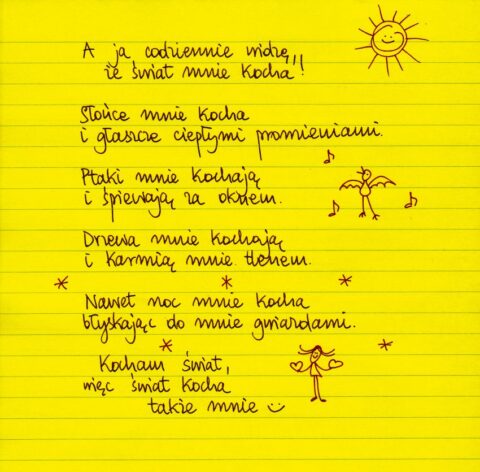 A ja codziennie widzę,
że świat mnie kocha!!
Słońce mnie kocha
i głaszcze ciepłymi promieniami.
Ptaki mnie kochają
i śpiewają za oknem.
Drzewa mnie kochają
i karmią mnie tlenem.
Nawet noc mnie kocha
błyskając do mnie gwiazdami.
Kocham świat,
więc świat kocha
także mnie